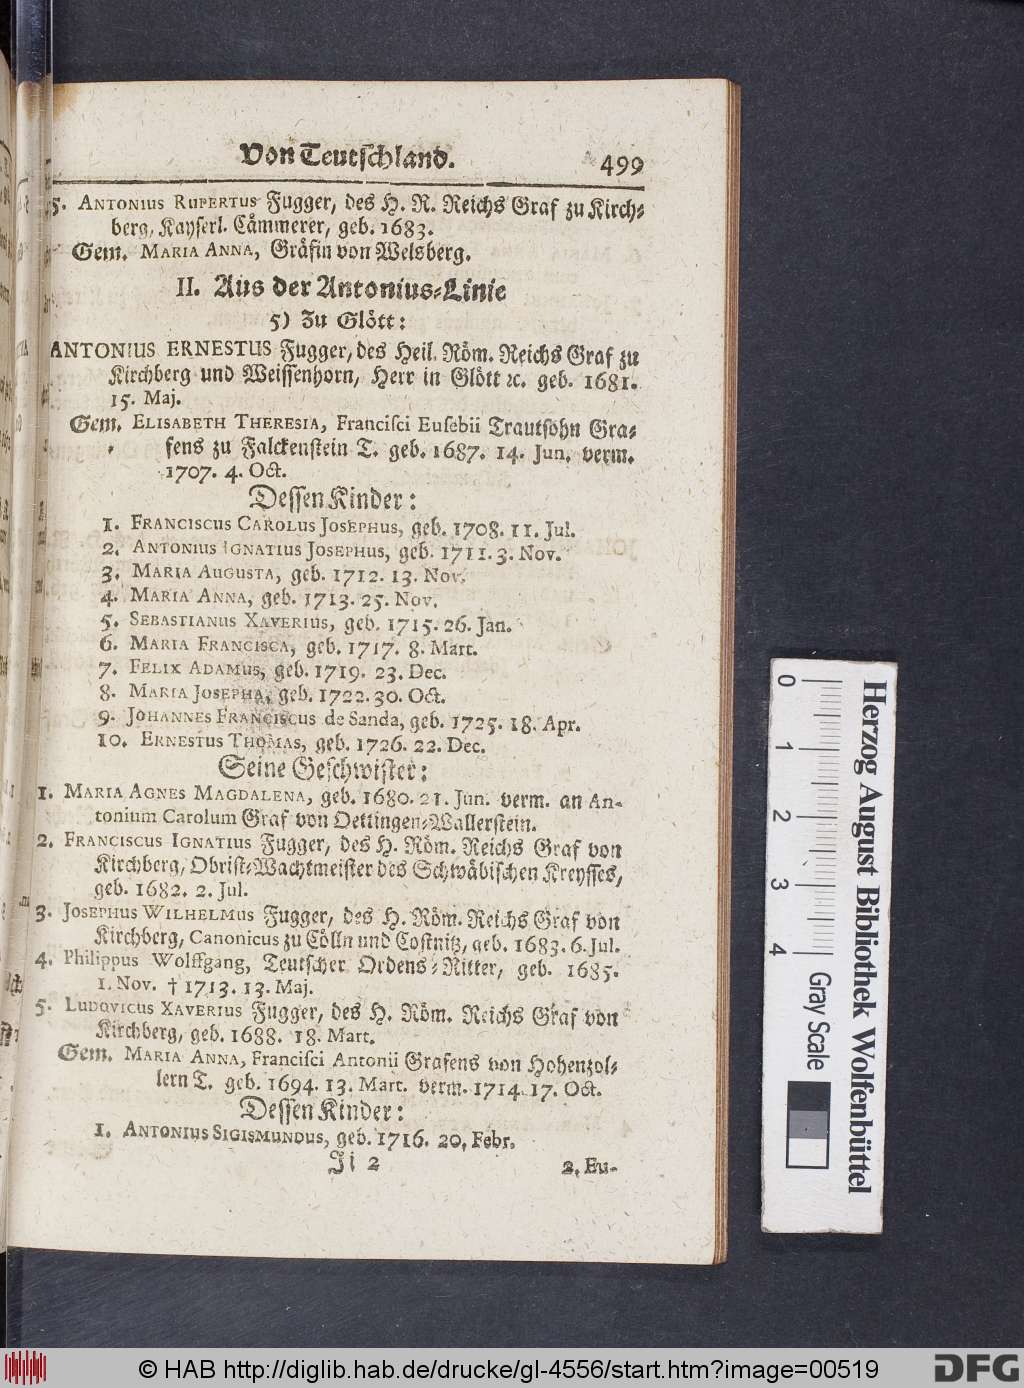 Von Teutschland. 499
5. ANTONIUS RUPERTUS Fugger, des H. R. Reichs Graf zu Kirch⸗
berg, Kayserl. Cämmerer, geb. 1683.
Gem. MARIA ANNA, Gräfin von Welsberg.
II. Aus der Antonius⸗Linie
5) Zu Glött:
ANTONIUS ERNESTUS Fugger, des Heil. Röm. Reichs Graf zu
Kirchberg und Weissenhorn, Herr in Glött ꝛc. geb. 1681.
15. Maj.
Gem. ELISABETH THERESIA, Francisci Eusebii Trautsohn Gra⸗
fens zu Falckenstein T. geb. 1687. 14. Jun. verm.
1707. 4. Oct.
Dessen Kinder:
1. FRANCISCUS CAROLUS JOSEPHUS, geb. 1708. 11. Jul.
2. ANTONIUS IGNATIUS JOSEPHUS, geb. 1711. 3. Nov.
3. MARIA AUGUSTA, geb. 1712. 13. Nov.
4. MARIA ANNA, geb. 1713. 25. Nov.
5. SEBASTIANUS XAVERIUS, geb. 1715. 26. Jan.
6. MARIA FRANCISCA, geb. 1717. 8. Mart.
7. FELIX ADAMUS, geb. 1719. 23. Dec.
8. MARIA JOSEPHA, geb. 1722. 30. Oct.
9. JOHANNES FRANCISCUS de Sanda, geb. 1725. 18. Apr.
10. ERNESTUS THOMAS, geb. 1726. 22. Dec.
Seine Geschwister:
1. MARIA AGNES MAGDALENA, geb. 1680. 21. Jun. verm. an An-
tonium Carolum Graf von Oettingen⸗Wallerstein.
2. FRANCISCUS IGNATIUS Fugger, des H. Röm. Reichs Graf von
Kirchberg, Obrist⸗Wachtmeister des Schwäbischen Kreysses,
geb. 1682. 2. Jul.
3. JOSEPHUS WILHELMUS Fugger, des H. Röm. Reichs Graf von
Kirchberg, Canonicus zu Cölln und Costnitz, geb. 1683. 6. Jul.
4. Philippus Wolffgang, Teutscher Ordens⸗Ritter, geb. 1685.
1. Nov. † 1713. 13. Maj.
5. LUDOVICUS XAVERIUS Fugger, des H. Röm. Reichs Graf von
Kirchberg, geb. 1688. 18. Mart.
Gem. MARIA ANNA, Francisci Antonii Grafens von Hohenzol⸗
lern T. geb. 1694. 13. Mart. verm. 1714. 17. Oct.
Dessen Kinder:
1. ANTONIUS SIGISMUNDUS, geb. 1716. 20. Febr.
Ji 2 2. Eu-
0 1 2 3 4 Gray Scale
Herzog August Bibliothek Wolfenbüttel
© HAB http://diglib.hab.de/drucke/gl-4556/start.htm?image=00519
DFG